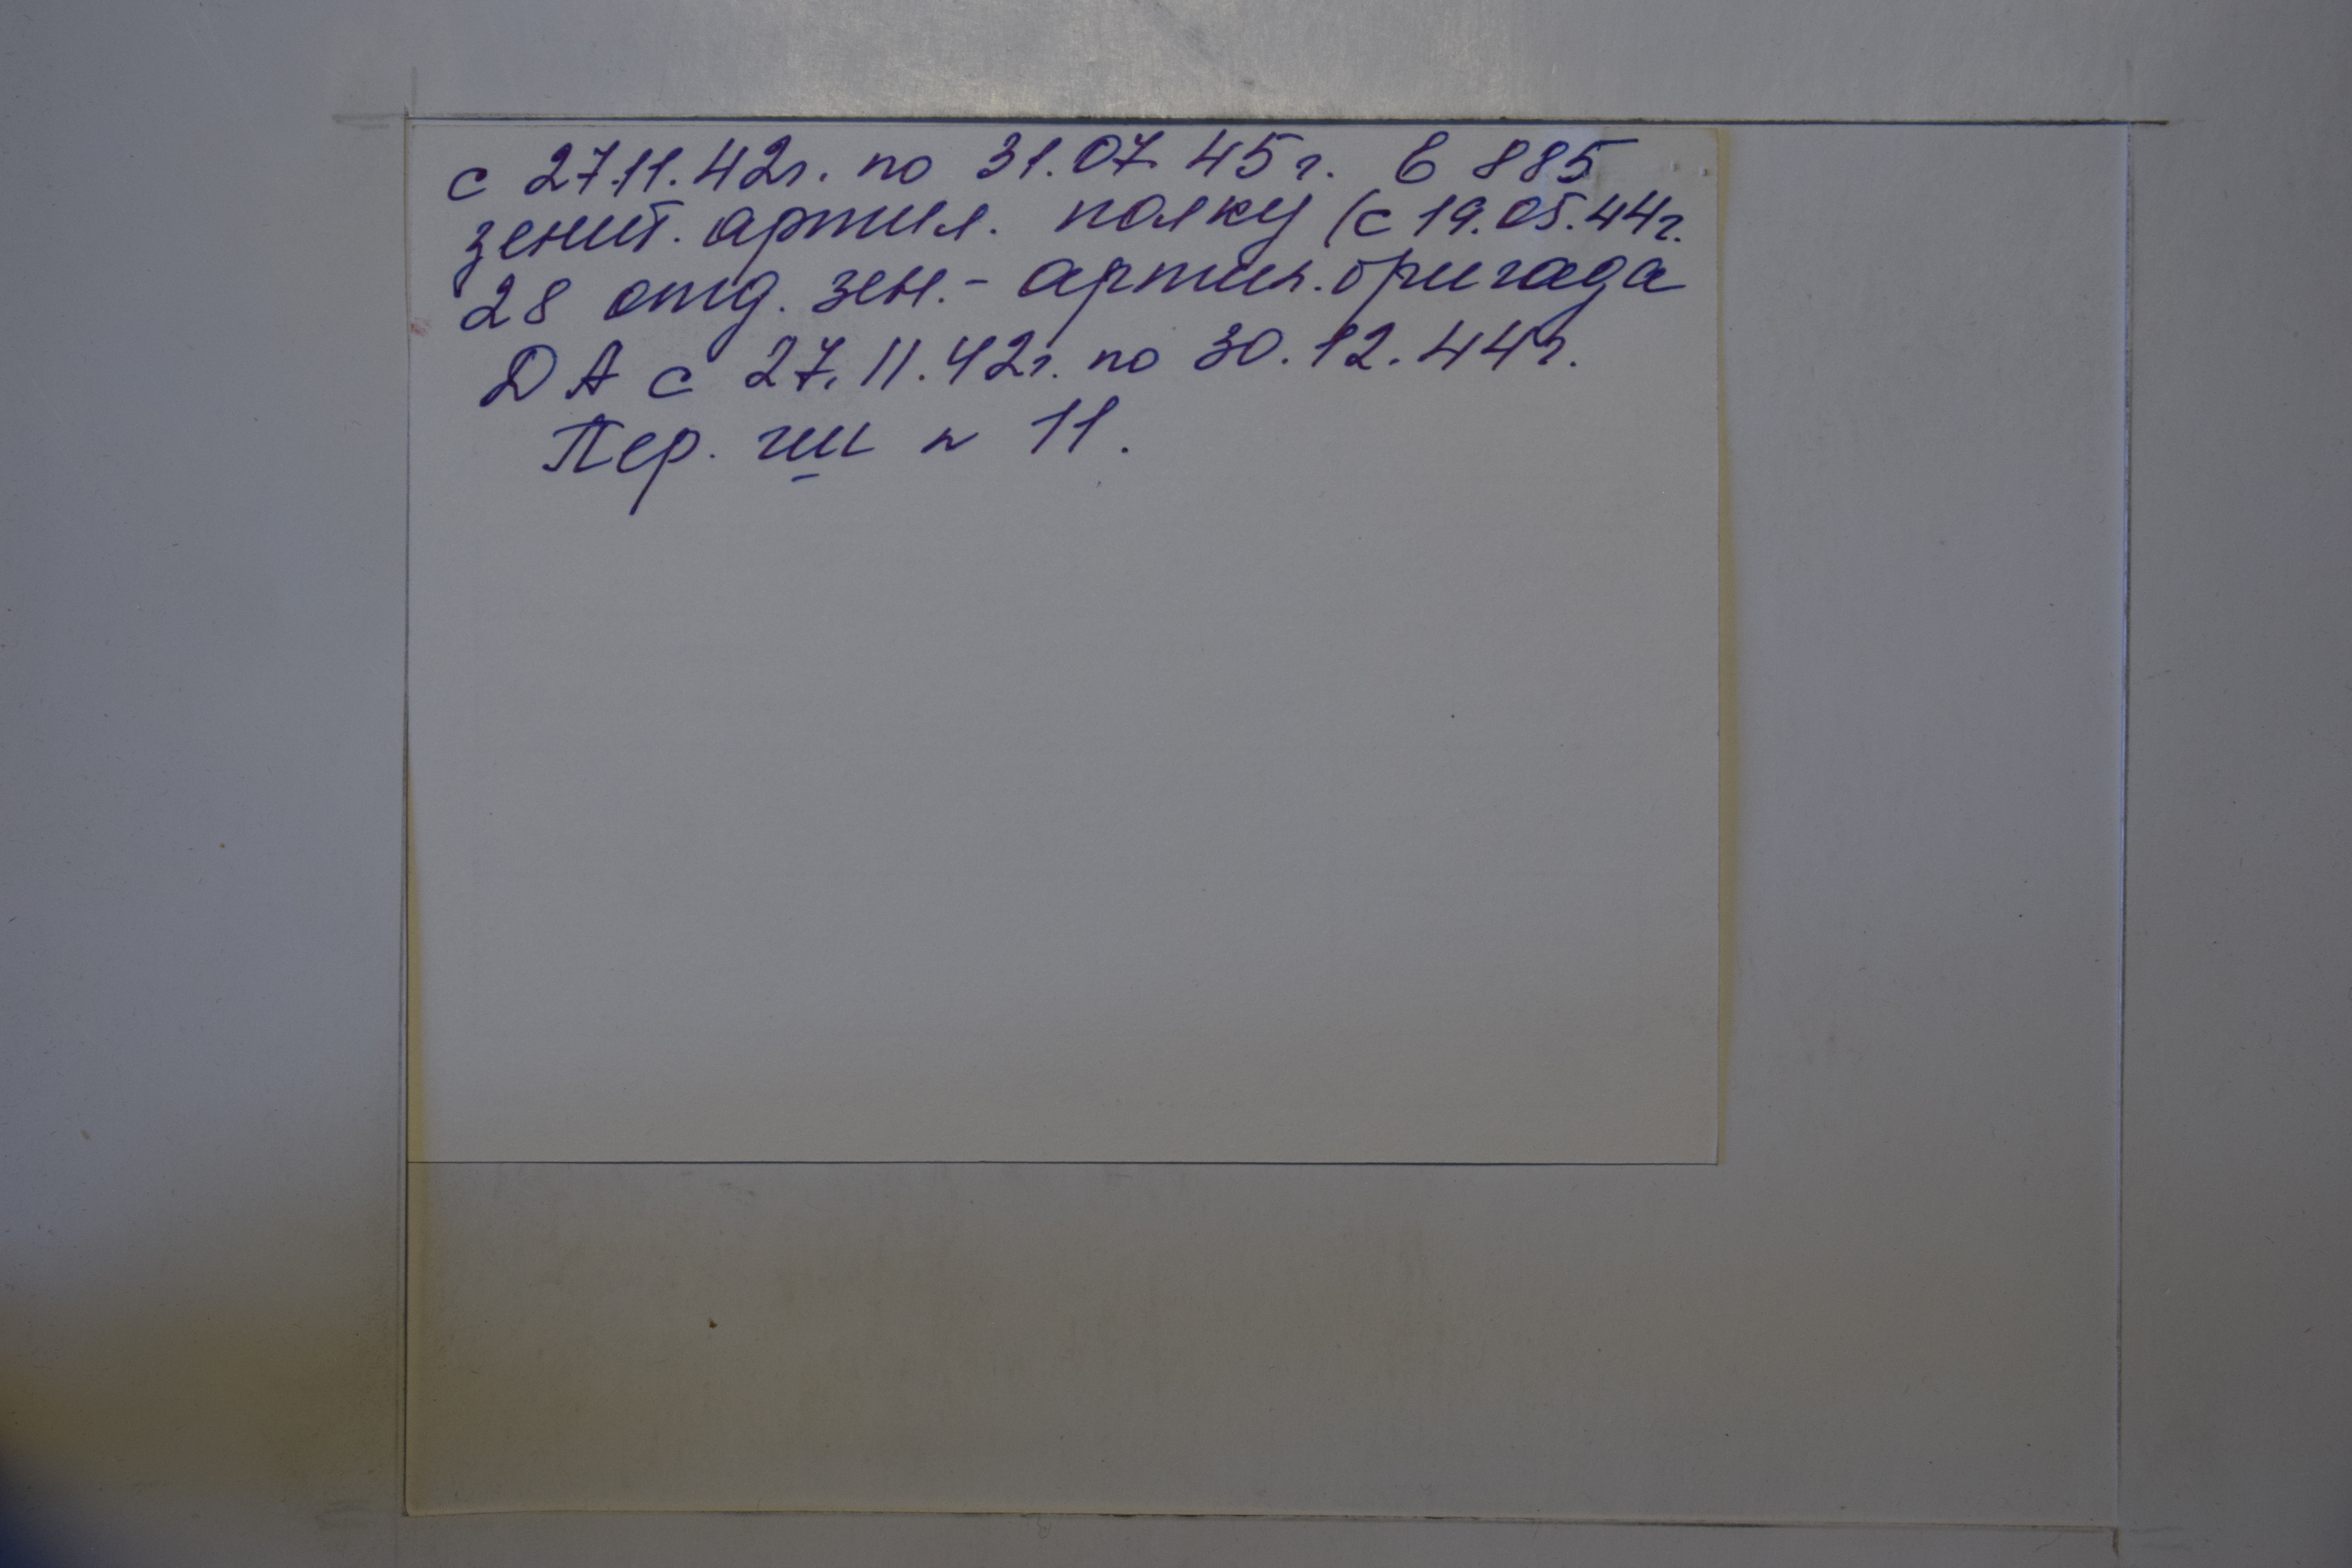 с 27.11.42г. по 31.07.45г. в 885
зенит. артил. полку (с 19.05.44г.
28 отд. зен.- артил. бригада
ДА с 27.11.42г. по 30.12.44г.
Пер. гш n 11.